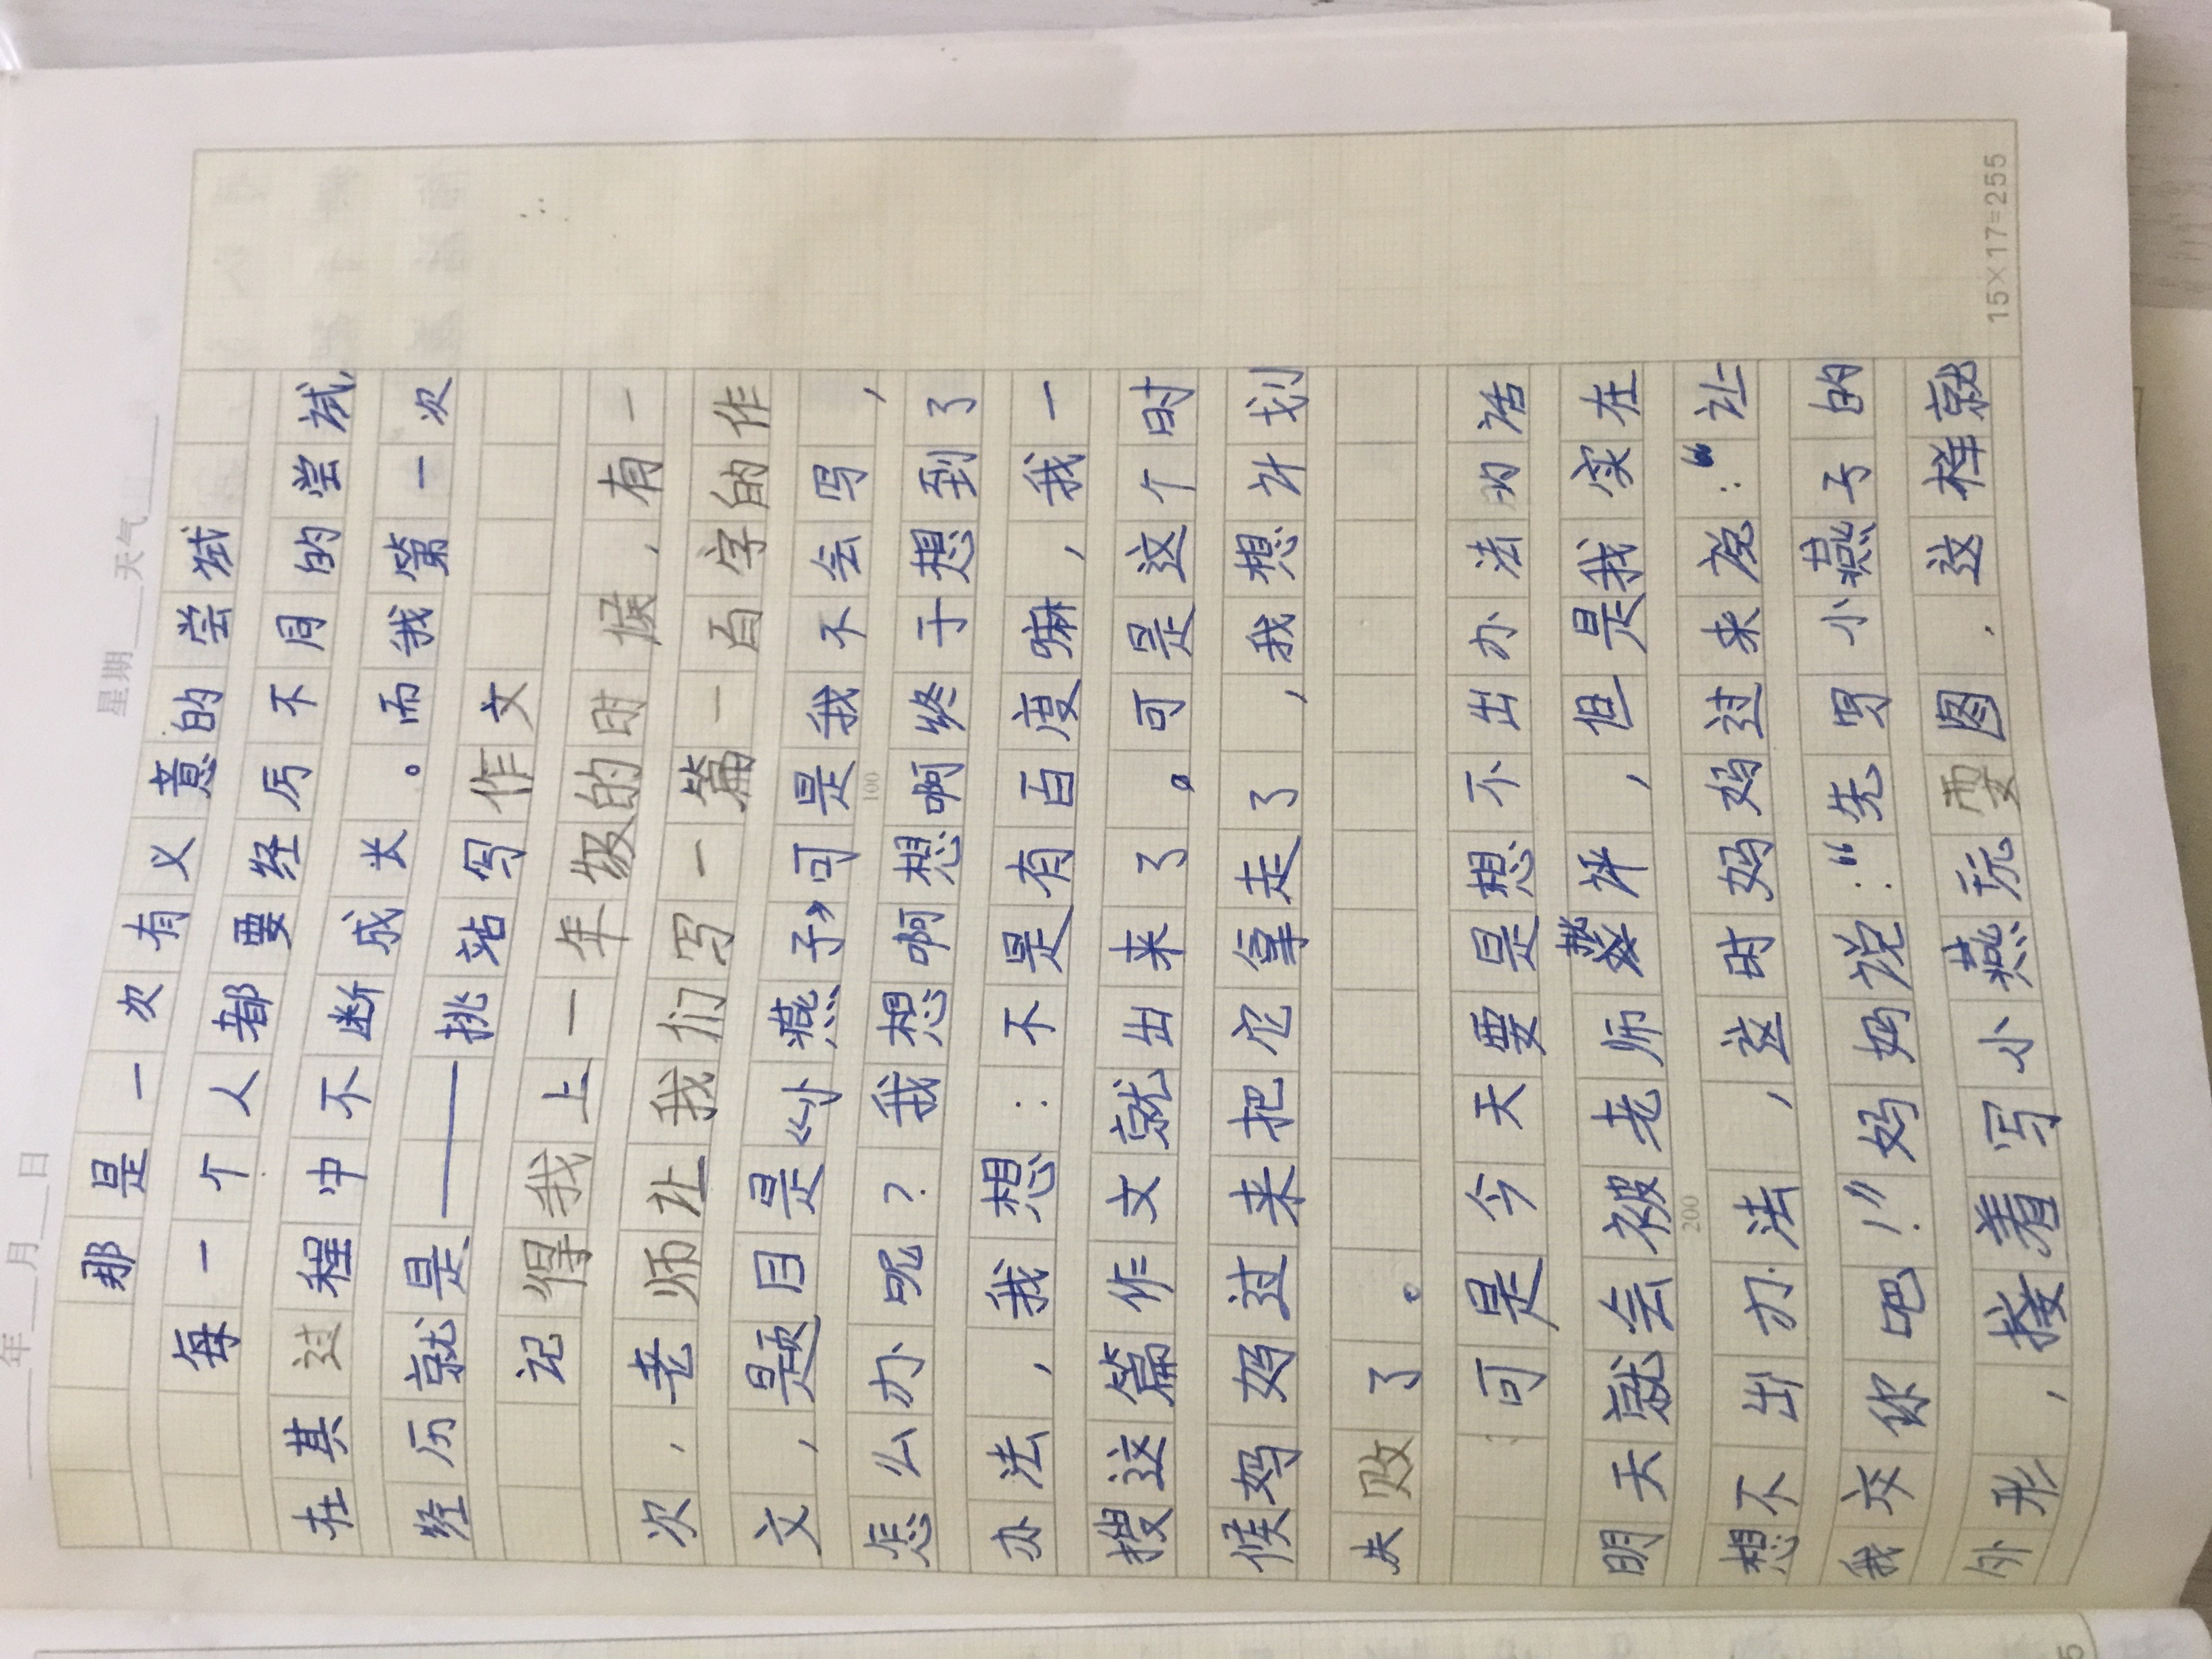 年 月 日 星期 天气
那是一次有义意的尝试
每一个人都要经厉不同的尝试,
在其过程中不断成长。而我第一次
经历就是——挑站写作文
记得我上一年级的时候,有一
次,老师让我们写一篇一百字的作
文,题目是《小燕子》可是我不会写,
100
怎么办呢?我想啊想啊终于想到了
办法,我想:不是有百度嘛,我一
搜这篇作文就出来了。可是这个时
候妈妈过来把它拿走了,我想计划
失败了。
可是今天要是想不出办法的话
明天就会被老师评,但是我实在
200
想不出办法,这时妈妈过来说:“让
我交你吧!”妈妈说:“先写小燕子的
外形,接着写小燕玩耍图.这样就
15×17=255